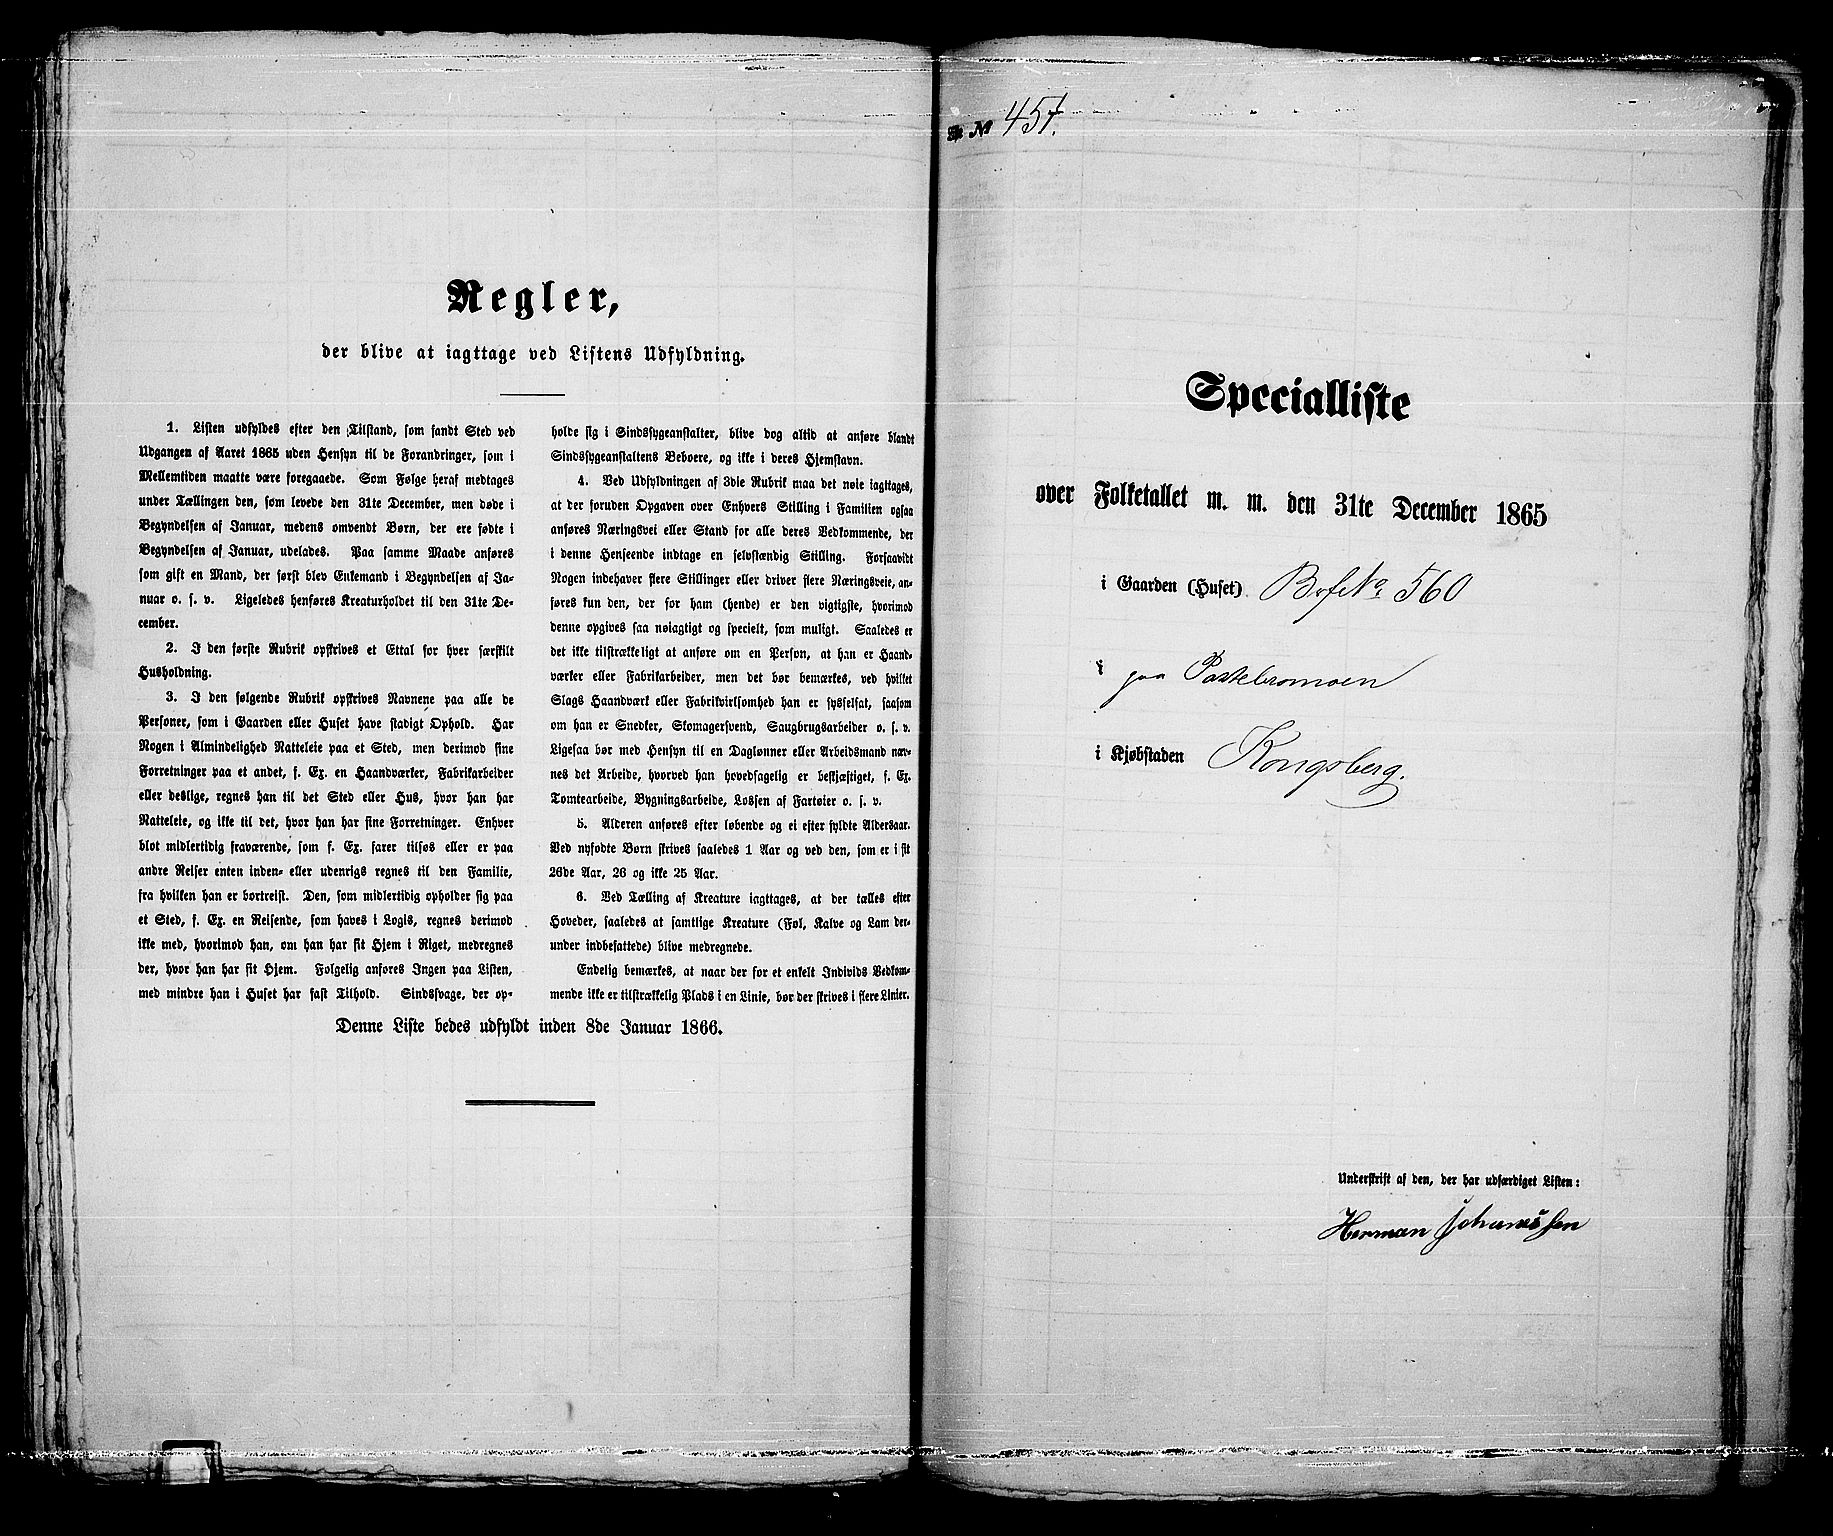 Regler,
der blive at iagttage ved Listens Udfyldning.
1. Listen udfyldes efter den Tilstand, som fandt Sted ved
Udgangen af Aaret 1865 uden Hensyn til de Forandringer, som i
Mellemtiden maatte være foregaaede. Som Følge heraf medtages
under Tællingen den, som levede den 31te December, men døde i
Begyndelsen af Januar, medens omvendt Børn, der ere fødte i
Begyndelsen af Januar, udelades. Paa samme Maade anføres
som gift en Mand, der først blev Enkemand i Begyndelsen af Ja-
nuar o. s. v. Ligeledes henføres Kreaturholdet til den 31te De-
cember.
2. I den første Rubrik opskrives et Ettal for hver særskilt
Husholdning.
3. I den følgende Rubrik opskrives Navnene paa alle de
Personer, som i Gaarden eller Huset have stadigt Ophold. Har
Nogen i Almindelighed Natteleie paa et Sted, men derimod sine
Forretninger paa et andet, f. Ex. en Haandværker, Fabrikarbeider
eller deslige, regnes han til det Sted eller Hus, hvor han har
Natteleie, og ikke til det, hvor han har sine Forretninger. Enhver
blot midlertidig fraværende, som f. Ex. farer tilsøs eller er paa
andre Reiser enten inden- eller udenrigs regnes til den Familie,
fra hvilken han er bortreist. Den, som midlertidig opholder sig paa
et Sted, f. Ex. en Reisende, som haves i Logis, regnes derimod
ikke med, hvorimod han, om han har sit Hjem i Riget, medregnes
der, hvor han har sit Hjem. Folgelig anføres Ingen paa Listen,
med mindre han i Huset har fast Tilhold. Sindssvage, der op-
holde sig i Sindssygeanstalter, blive dog altid at anføre blandt
Sindssygeanstaltens Beboere, og ikke i deres Hjemstavn.
4. Ved Udfyldningen af 3die Rubrik maa det nøie iagttages,
at der foruden Opgaven over Enhvers Stilling i Familien ogsaa
anføres Næringsvei eller Stand for alle deres Vedkommende, der
i denne Henseende indtage en selvstændig Stilling. Forsaavidt
Nogen indehaver flere Stillinger eller driver flere Næringsveie, an-
føres kun den, der for ham (hende) er den vigtigste, hvorimod
denne opgives saa nøiagtigt og specielt, som muligt. Saaledes er
det ikke tilstrækkeligt at anføre om en Person, at han er Haand-
værker eller Fabrikarbeider, men det bør bemærkes, ved hvilket
Slags Haandværk eller Fabrikvirksomhed han er sysselsat, saasom
om han er Snedker, Skomagersvend, Saugbrugsarbeider o. s. v.
Ligesaa bør med Hensyn til en Daglønner eller Arbeidsmand næv-
nes det Arbeide, hvorved han hovedsagelig er beskjæftiget, f. Ex.
Tomtearbeide, Bygningsarbeide, Lossen af Fartøier o. s. v.
5. Alderen anføres efter løbende og ei efter fyldte Aldersaar.
Ved nyfødte Børn skrives saaledes 1 Aar og ved den, som er i sit
26de Aar, 26 og ikke 25 Aar.
6. Ved Tælling af Kreature iagttages, at der tælles efter
Hoveder, saaledes at samtlige Kreature (Føl, Kalve og Lam der-
under indbefattede) blive medregnede.
Endelig bemærkes, at naar der for et enkelt Individs Vedkom-
mende ikke er tilstrækkelig Plads i en Linie, bør der skrives i flere Linier.
Denne Liste bedes udfyldt inden 8de Januar 1866.
№ 451.
Specialliste
over Folketallet m. m. den 31te December 1865
i Gaarden (Huset) No 560
i paa
i Kjøbstaden Kongsberg.
Underskrift af den, der har udfærdiget Listen:
Herman Johanssen